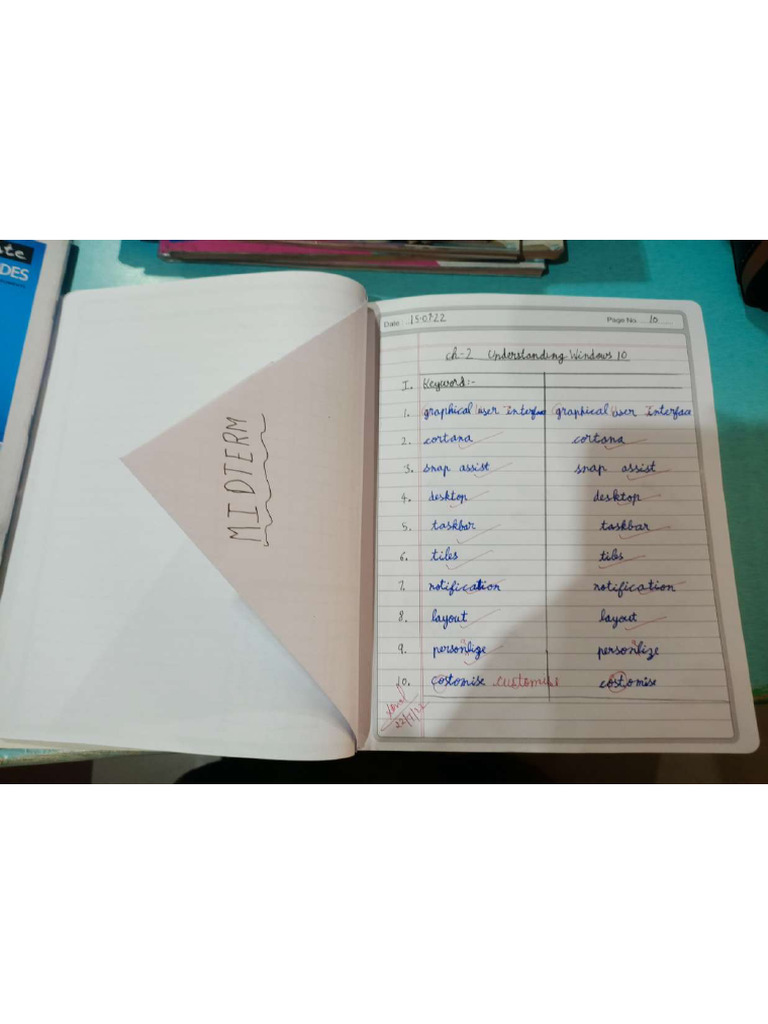 te
DES
MIDTERM
Date : 15.07.22 Page No. 10
Ch-2 Understanding Windows 10
I. Keyword:-
1. graphical user interface graphical user interface
2. cortana cortana
3. snap assist snap assist
4. desktop desktop
5. taskbar taskbar
6. tiles tiles
7. notification notification
8. layout layout
a a
9. personlize personlize
10. costomise customise costomise
22/7/22